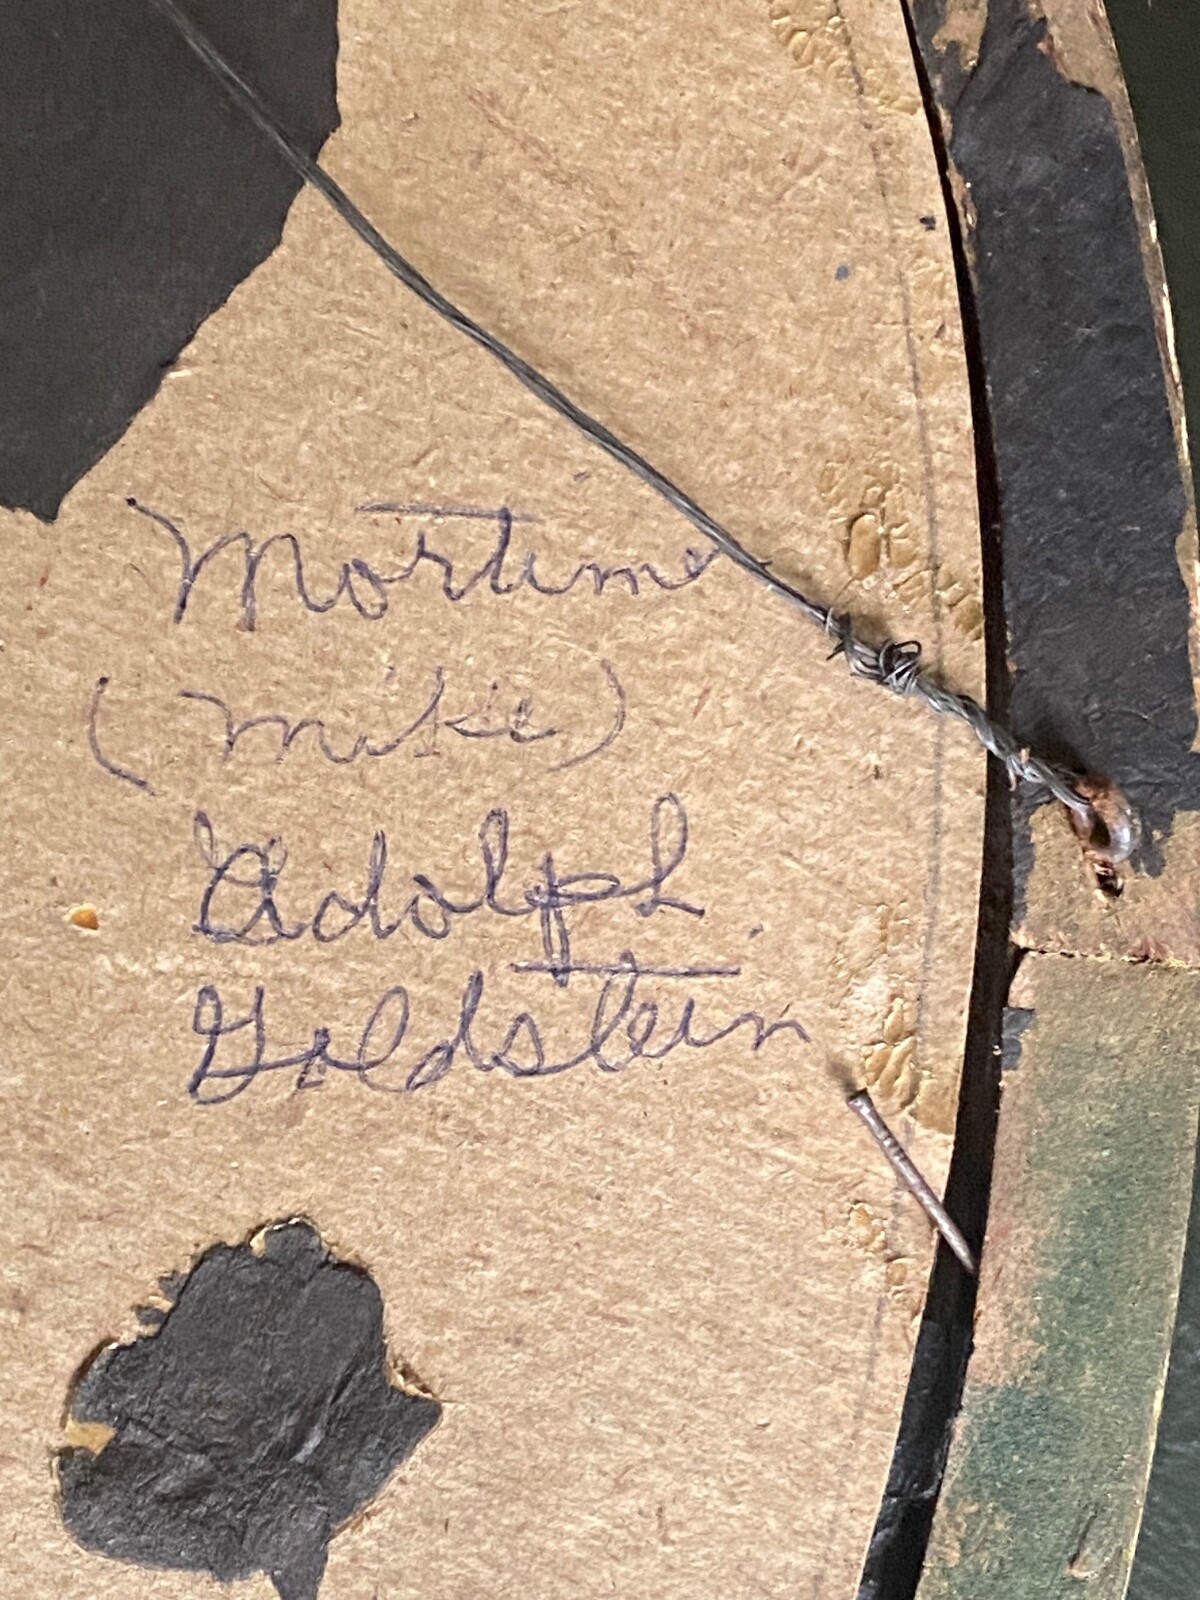 Mortimer
(Mike)
Adolph
Goldstein